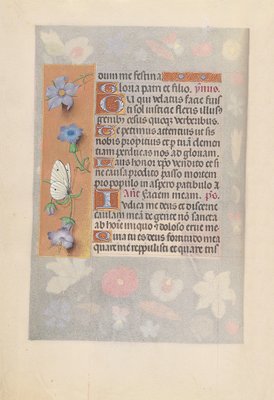 dum me festina
Gloria patri et filio. ymnus.
Qui velatus facie fuis
ti sol iusticie flexis illus
genibus cesus quoque verberibus.
Te petimus attentius ut sis
nobis propitius et per tuam clemen
tiam perducas nos ad gloriam.
Laus honor xpo vendito et si
ne causa prodito passo mortem
pro populo in aspero patibulo a
Ane faciem meam. ps.
Iudica me deus et discerne
causam meam de gente non sancta
ab homine iniquo et doloso erue me
Quia tu es deus fortitudo mea
quare me reppulisti et quare tris